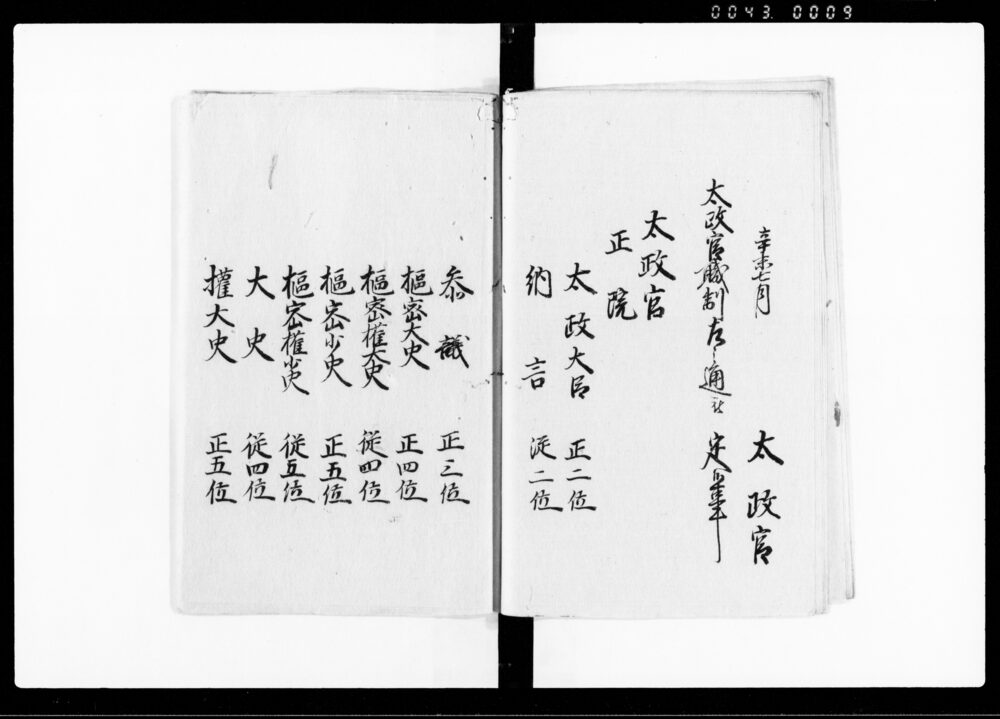 0043. 0009
辛未七月
太政官
太政官職制左之通被定候事
太政官
正院
太政大臣 正二位
納言 従二位
参議 正三位
枢密大史 正四位
枢密権大史 従四位
枢密少史 正五位
枢密権少史 従五位
大史 従四位
権大史 正五位